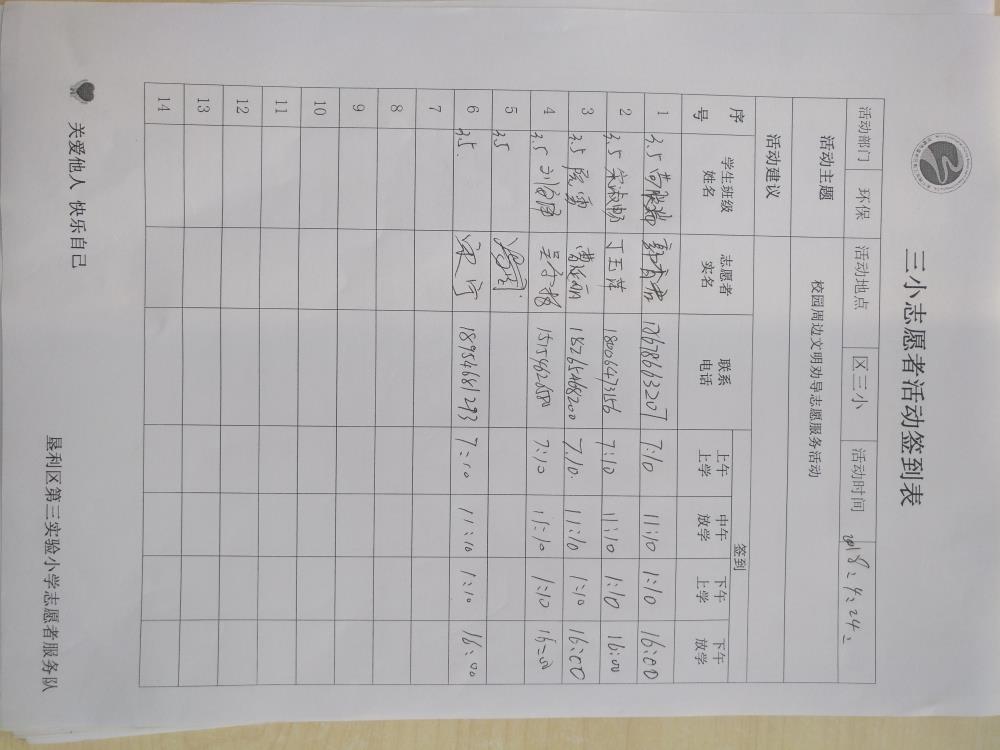 三小志愿者活动签到表
活动部门 环保 活动地点 区三小 活动时间 2018.4.24.
活动主题 校园周边文明劝导志愿服务活动
活动建议
序号 学生班级姓名 志愿者实名 联系电话 签到
上午上学 中午放学 下午上学 下午放学
1 3.5 7:10 11:10 1:10 16:00
2 3.5 宋淑畅 丁玉萍 18006473156 7:10 11:10 1:10 16:00
3 3.5 18265468200 7.10. 11:10 1:10 16:00
4 3.5 7:10 11:10 1:10 16:00
5 3.5
6 3.5. 18954681293 7:10 11:10 1:10 16:00
7
8
9
10
11
12
13
14
关爱他人 快乐自己
垦利区第三实验小学志愿者服务队